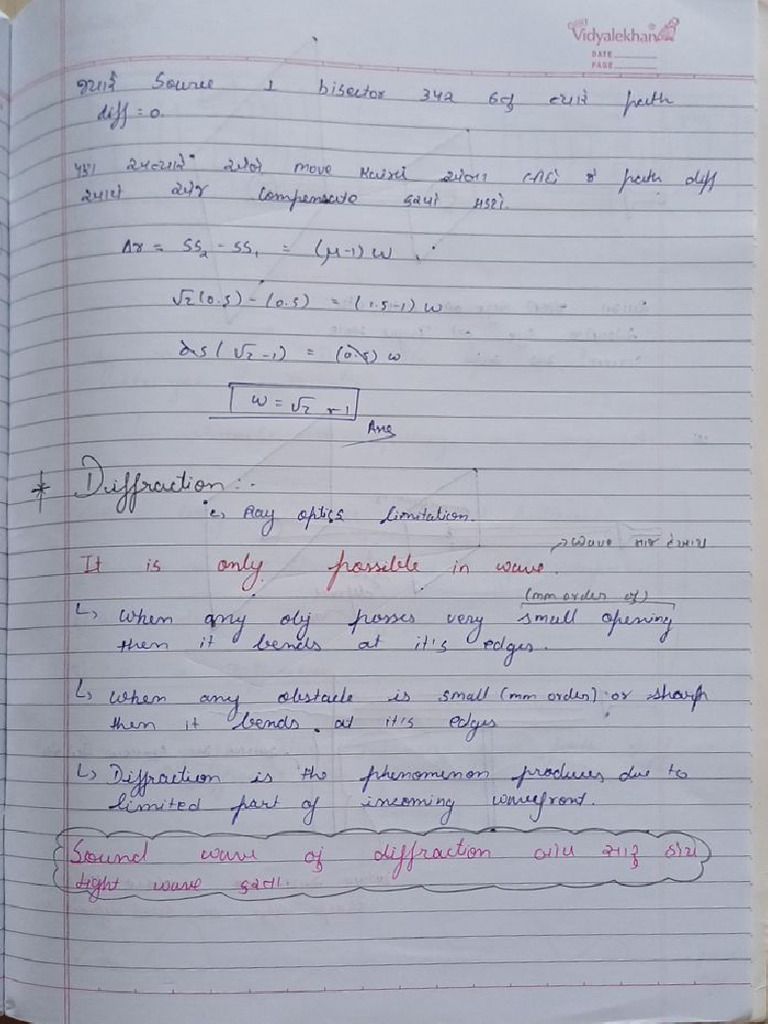 Vidyalekhan
DATE
PAGE
જ્યારે Source ⊥ bisector ઉપર હતુ ત્યારે path
diff = 0.
પણ અત્યારે move path diff
compensate કરવો પડશે.
Δr = SS₂ - SS₁ = (μ-1) w
√2(0.5) - (0.5) = (1.5-1) w
0.5(√2-1) = (0.5) w
w = √2 -1
Ans
* Diffraction :-
↳ Ray optics limitation.
It is only possible in wave.
(mm order of)
↳ When any obj passes very small opening
then it bends at it's edges.
↳ When any obstacle is small (mm order) or sharp
then it bends at it's edges
↳ Diffraction is the phenomenon produces due to
limited part of incoming wavefront.
Sound wave નું diffraction વધારે સારું હોય
light wave કરતા.